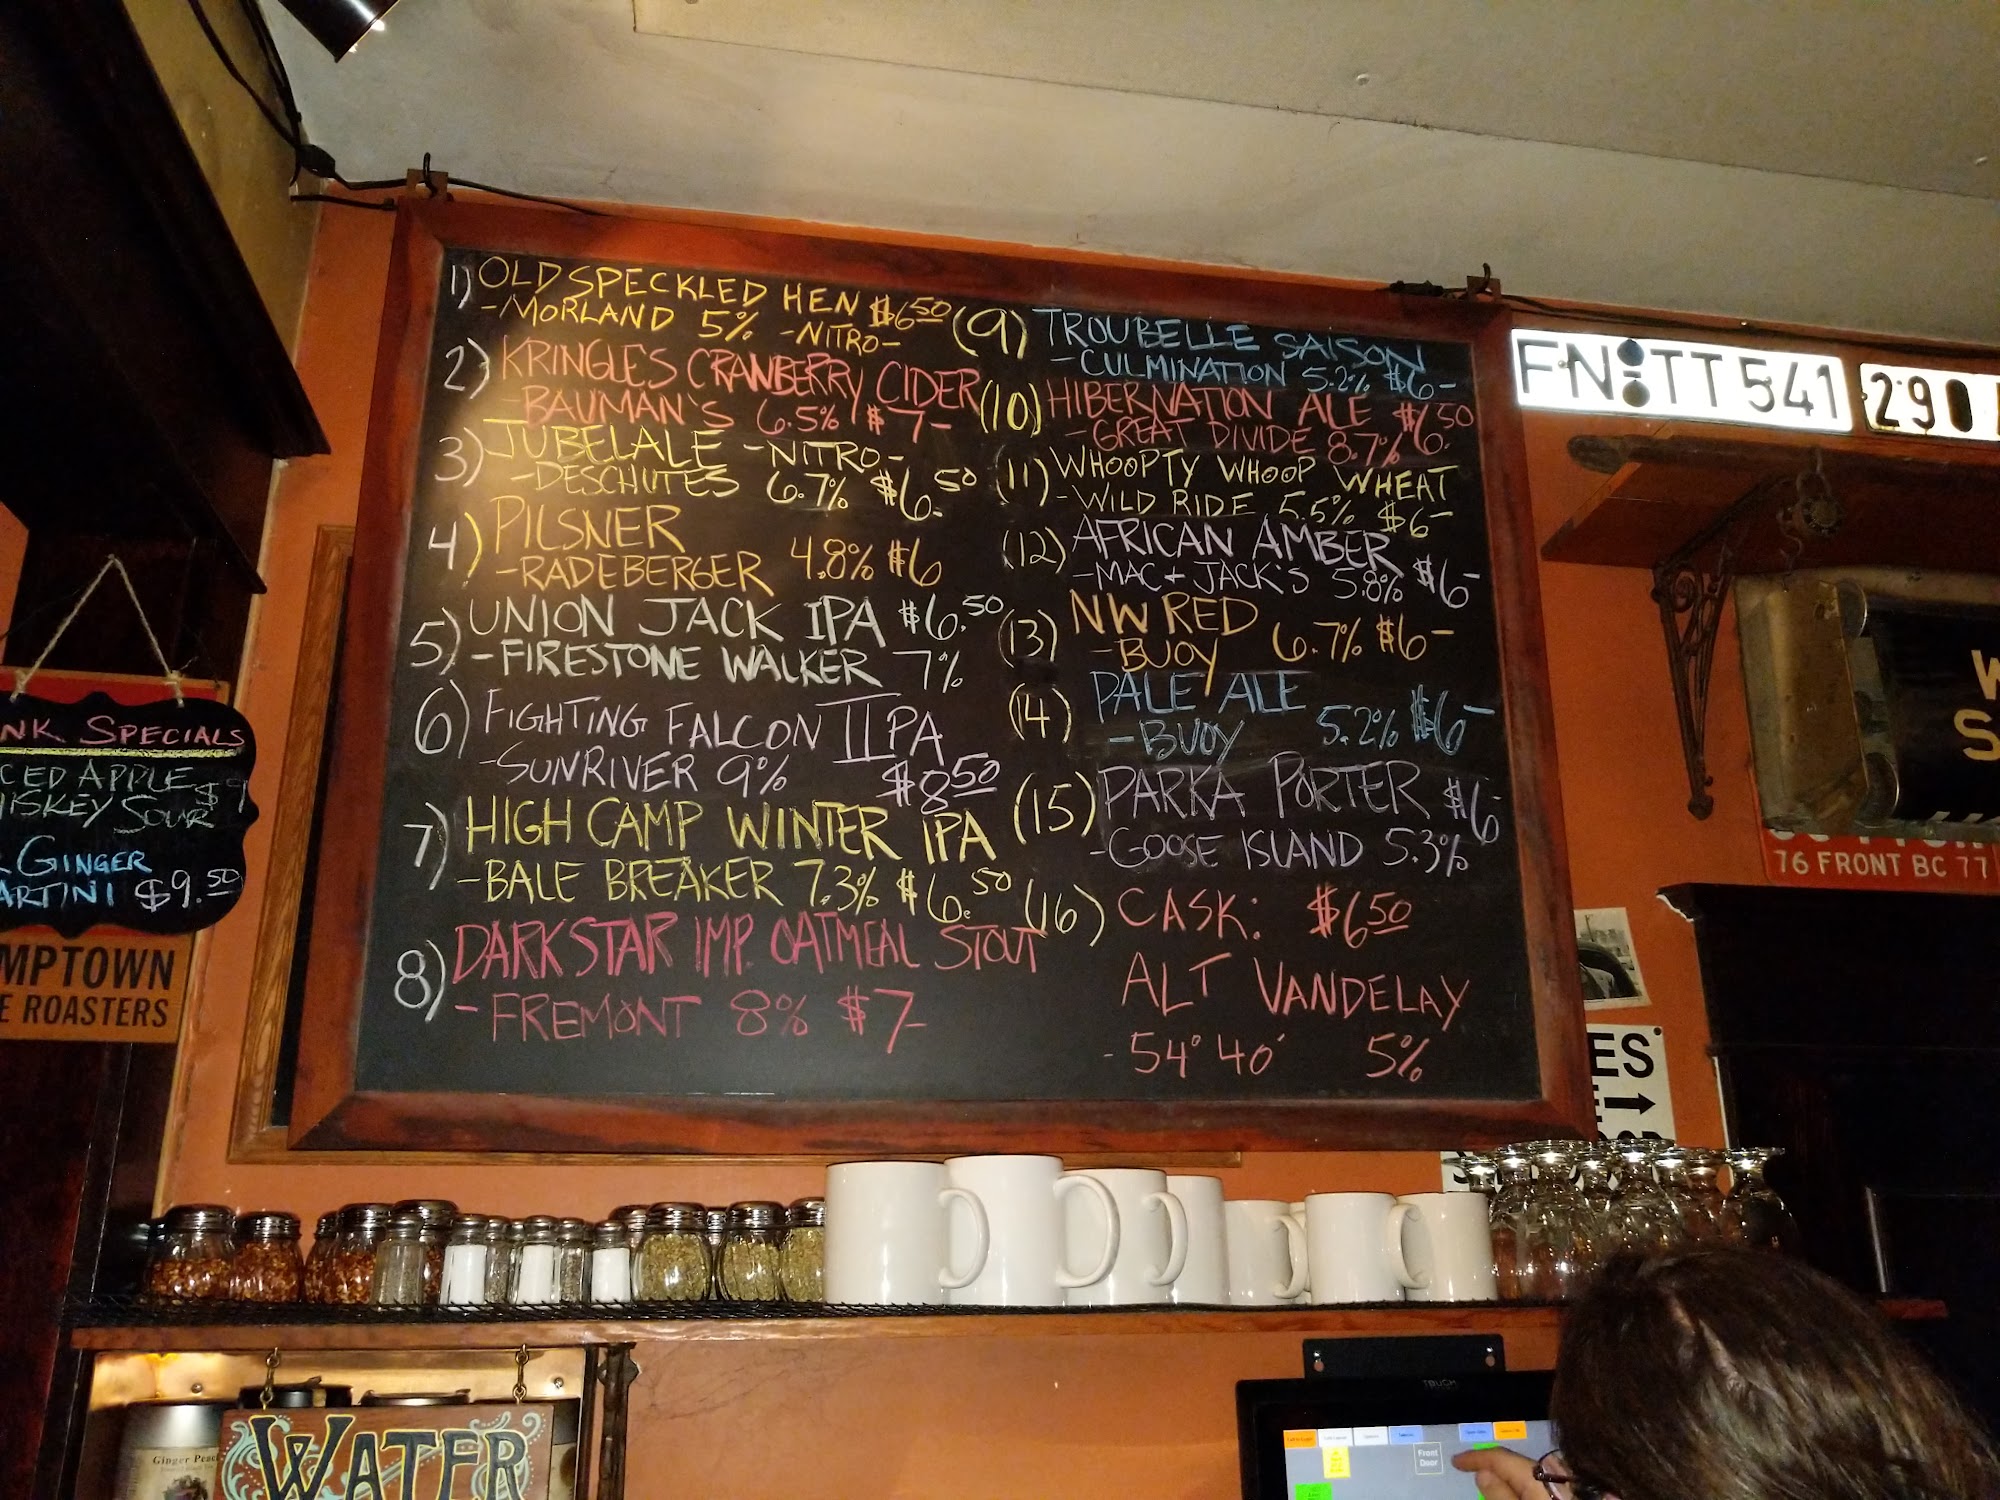 1) OLD SPECKLED HEN $6.50
-MORLAND 5% -NITRO-
2) KRINGLES CRANBERRY CIDER
-BAUMAN'S 6.5% $7-
3) JUBELALE -NITRO-
-DESCHUTES 6.7% $6.50
4) PILSNER
-RADEBERGER 4.8% $6
5) UNION JACK IPA $6.50
-FIRESTONE WALKER 7%
6) FIGHTING FALCON IIPA
-SUNRIVER 9% $8.50
7) HIGH CAMP WINTER IPA
-BALE BREAKER 7.3% $6.50
8) DARKSTAR IMP. OATMEAL STOUT
-FREMONT 8% $7-
(9) TROUBELLE SAISON
-CULMINATION 5.2% $6-
(10) HIBERNATION ALE $6.50
-GREAT DIVIDE 8.7%
(11) WHOOPTY WHOOP WHEAT
-WILD RIDE 5.5% $6-
(12) AFRICAN AMBER
-MAC + JACK'S 5.8% $6-
(13) NW RED
-BUOY 6.7% $6-
(14) PALE ALE
-BUOY 5.2% $6-
(15) PARKA PORTER $6-
-GOOSE ISLAND 5.3%
(16) CASK: $6.50
ALT VANDELAY
-54°40' 5%
NK SPECIALS
CED APPLE
HISKEY SOUR $9
GINGER
ARTINI $9.50
MPTOWN
E ROASTERS
FN TT 541
290
W
S
76 FRONT BC 77
ES
WATER
Ginger Peac
TOUCH
Front
Door